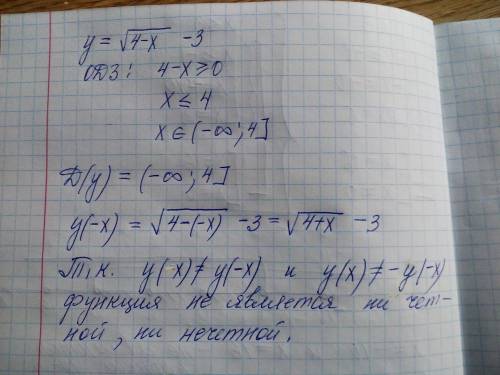 y = √4-x - 3
ОДЗ: 4-x ≥ 0
x ≤ 4
x ∈ (-∞; 4]
D(y) = (-∞; 4]
y(-x) = √4-(-x) - 3 = √4+x - 3
Т.к. y(x) ≠ y(-x) и y(x) ≠ -y(-x)
функция не является ни чет-
ной, ни нечетной.